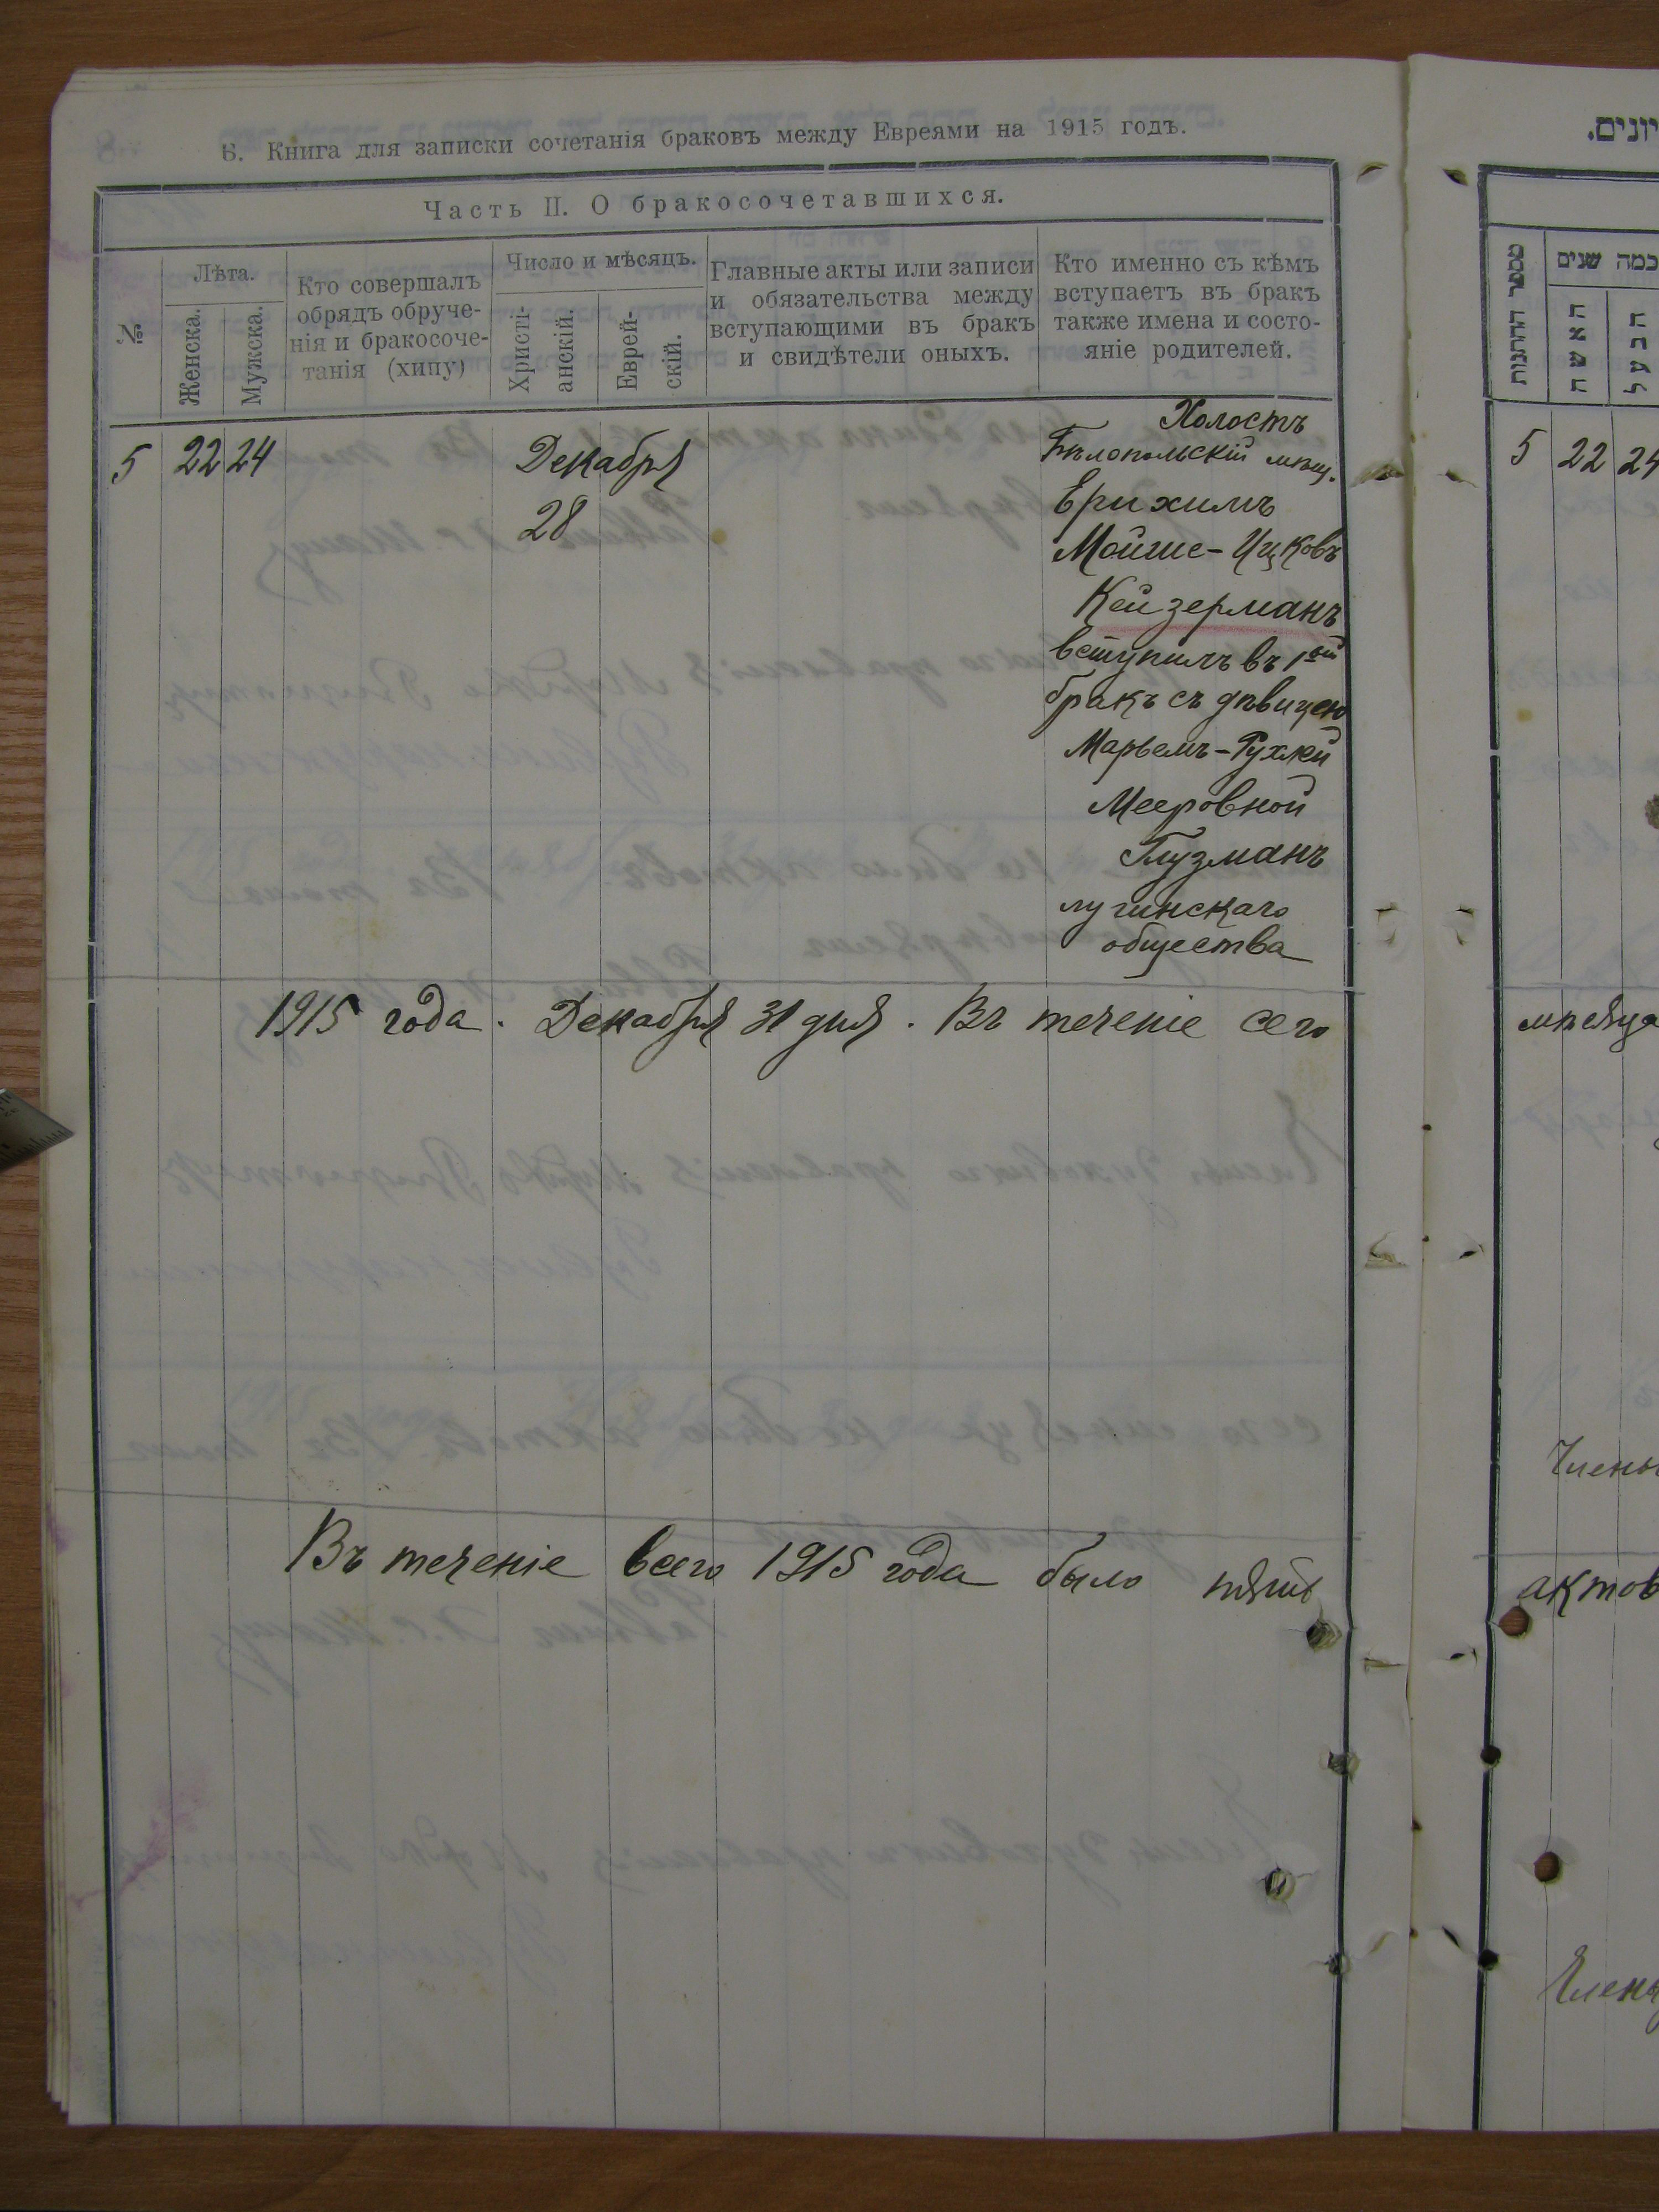 Б. Книга для записки сочетанія браковъ между Евреями на 1915 годъ.
Часть II. О бракосочетавшихся.
№
Лѣта.
Женска.
Мужска.
Кто совершалъ
обрядъ обруче-
нія и бракосоче-
танія (хипу)
Число и мѣсяцъ.
Христі-
анскій.
Еврей-
скій.
Главные акты или записи
и обязательства между
вступающими въ бракъ
и свидѣтели оныхъ.
Кто именно съ кѣмъ
вступаетъ въ бракъ
также имена и состо-
яніе родителей.
5 22 24 Декабря
28
Холостъ
Бѣлопольскій мѣщ.
Ерихимъ
Мойше-Ицковъ
Кейзерманъ
вступилъ въ 1ой
бракъ съ дѣвицею
Марьемъ-Рухлей
Мееровной
Глузманъ
лугинскаго
общества
1915 года. Декабря 31 дня. Въ теченіе сего
Въ теченіе всего 1915 года было пять
יונים.
מספר החתונות
כמה שנים
האשה
הבעל
5 22 24
мѣсяца
Члены
актов
Члены